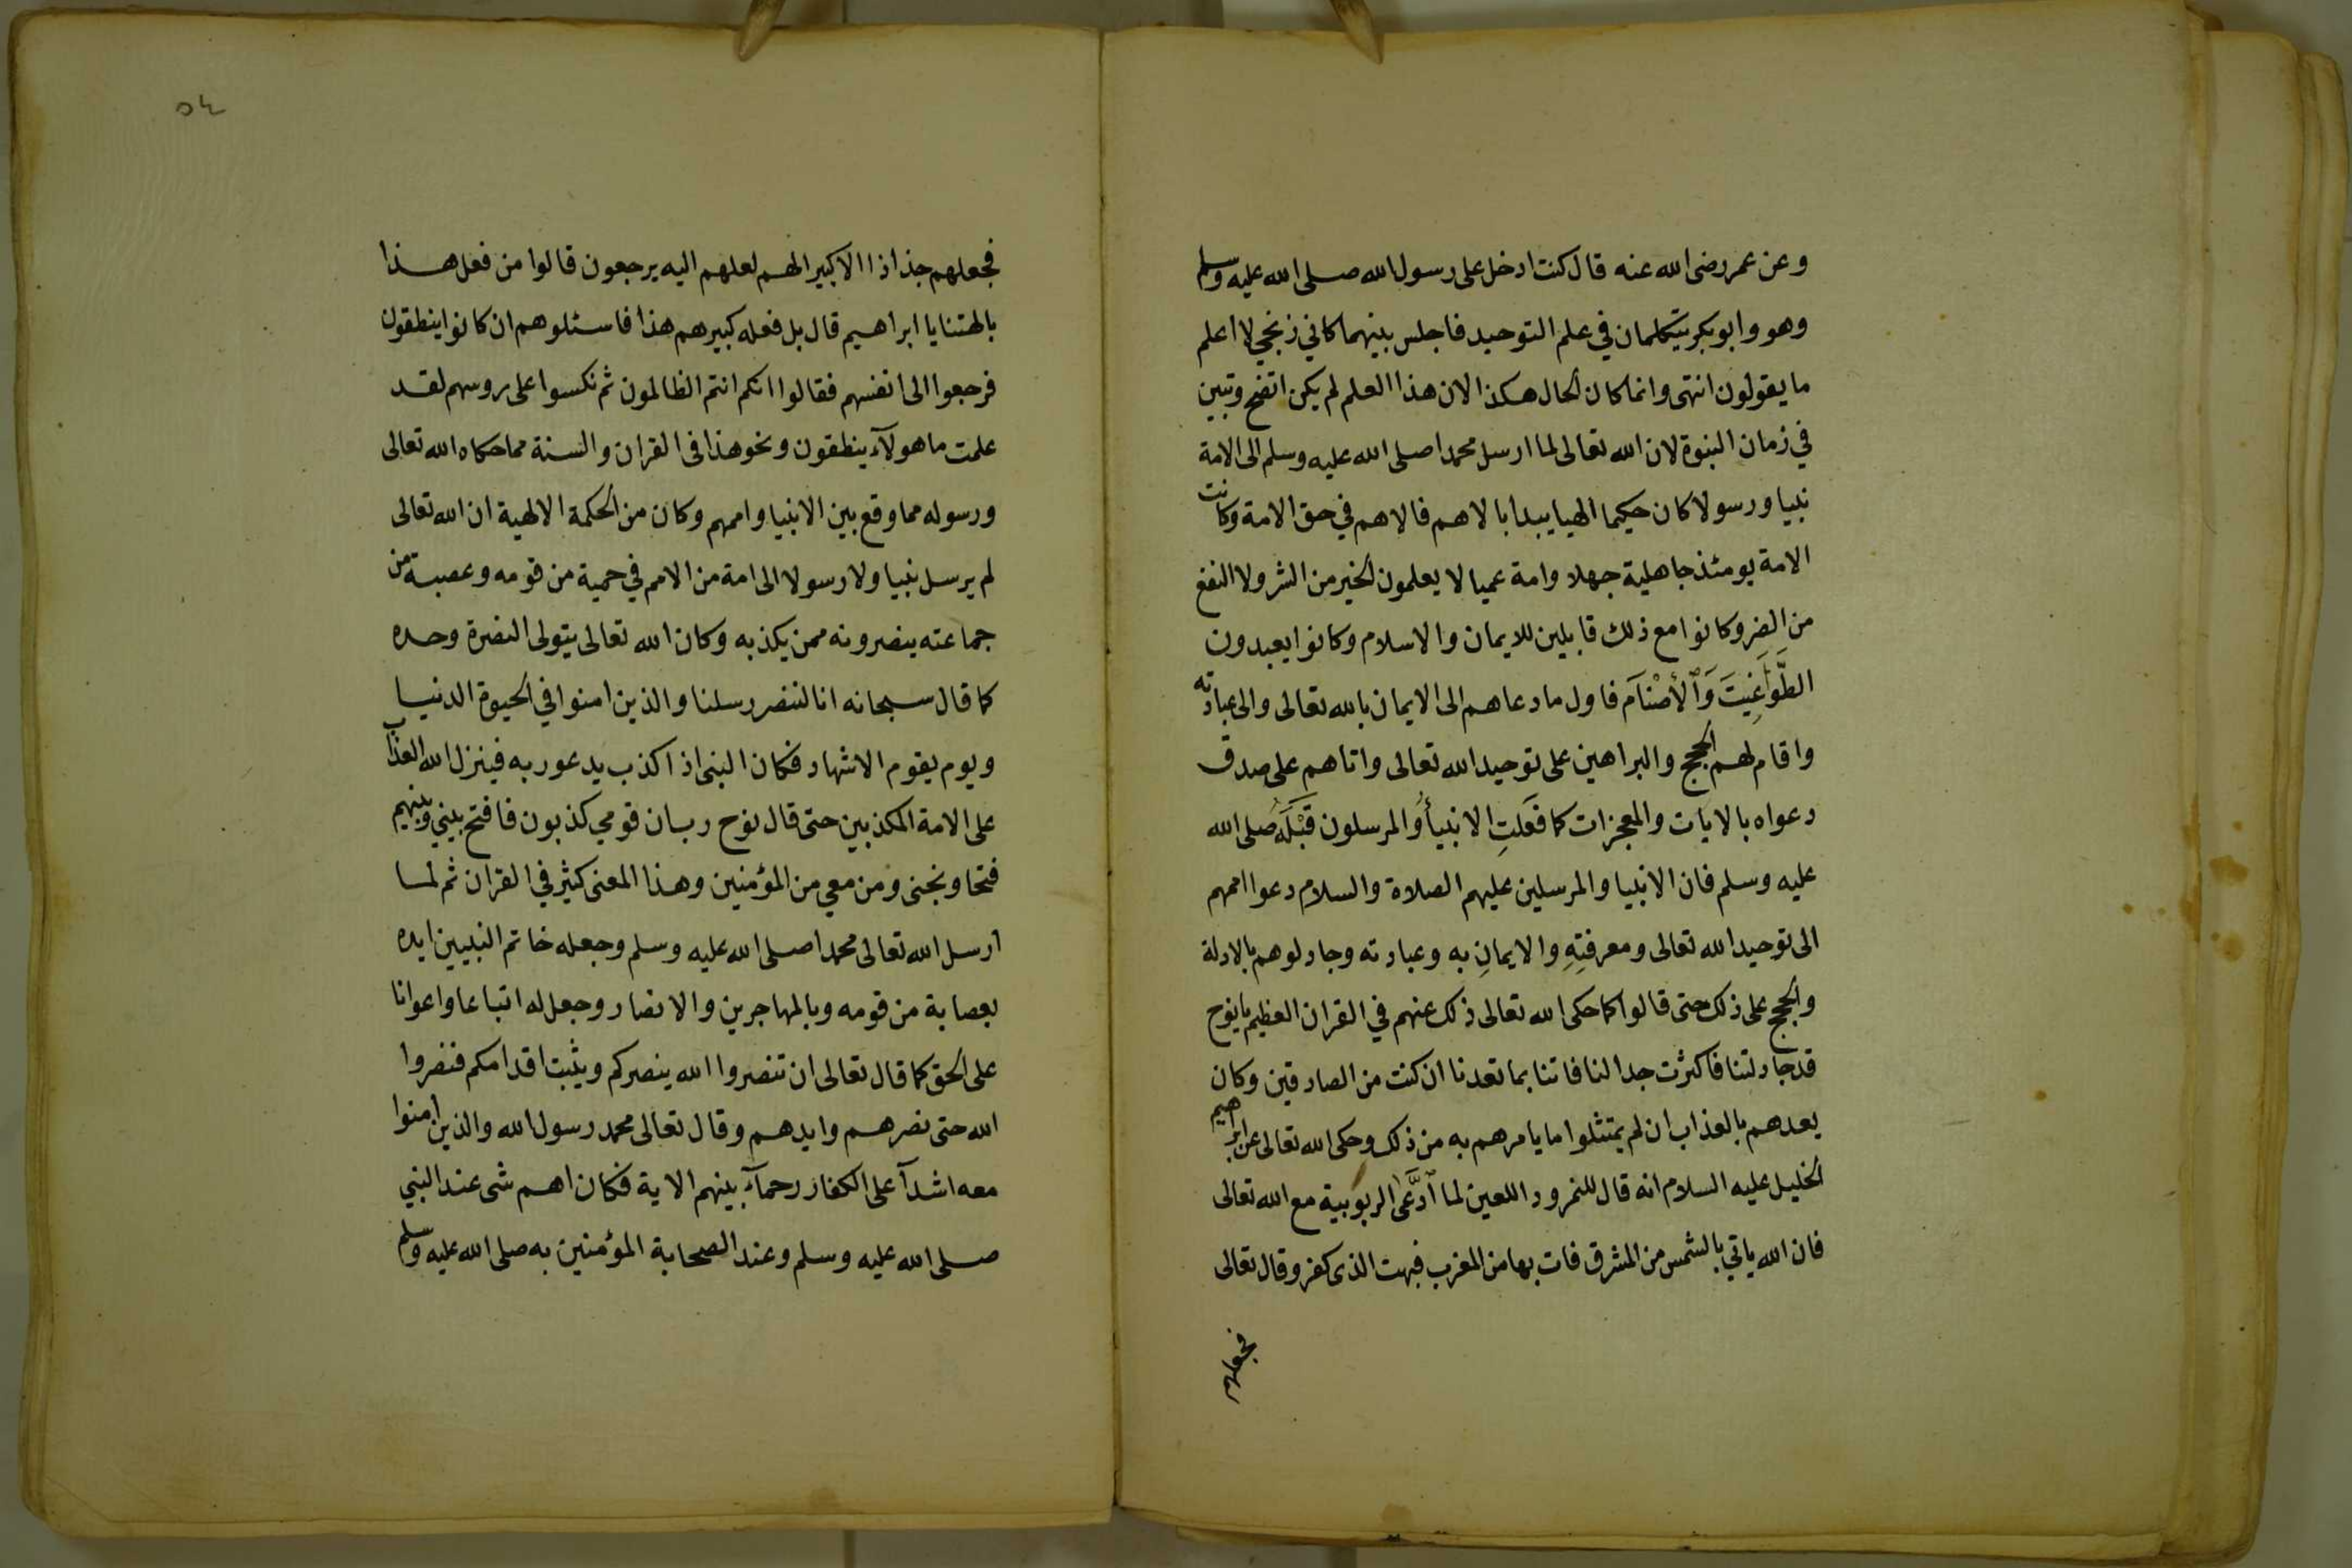 وعن عمر رضى الله عنه قال كنت ادخل على رسول الله صلى الله عليه وسلم
وهو وابوبكر يتكلمان في علم التوحيد فاجلس بينهما كاني زنجي لا اعلم
ما يقولون انتهى وانما كان الحال هكذا لان هذا العلم لم يكن اتضح وتبين
في زمان النبوة لان الله تعالى لما ارسل محمدا صلى الله عليه وسلم الى الامة
نبيا ورسولا كان حكيما الهيا يبدا بالاهم فالاهم في حق الامة وكانت
الامة يومئذ جاهلية جهلا وامة عميا لا يعلمون الخير من الشر ولا النفع
من الضر وكانوا مع ذلك قابلين للايمان والاسلام وكانوا يعبدون
الطَّوَاغِيتَ وَالأَصْنَامَ فاول ما دعاهم الى الايمان بالله تعالى والى عبادته
واقام لهم الحجج والبراهين على توحيد الله تعالى واتاهم على صدق
دعواه بالايات والمعجزات كما فَعَلَتِ الانبيأُ والمرسلون قَبْلَهُ صلى الله
عليه وسلم فان الانبيا والمرسلين عليهم الصلاة والسلام دعوا اممهم
الى توحيد الله تعالى ومعرفتِهِ والايمانِ به وعبادته وجادلوهم بالادلة
والحجج على ذلك حتى قالوا كما حكى الله تعالى ذلك عنهم في القران العظيم يا نوح
قد جادلتنا فاكثرت جدالنا فاتنا بما تعدنا ان كنت من الصادقين وكان
يعدهم بالعذاب ان لم يمتثلوا ما يامرهم به من ذلك وحكى الله تعالى عن ابراهيم
الخليل عليه السلام انه قال للنمرود اللعين لما ادَّعَى الربوبية مع الله تعالى
فان الله ياتي بالشمس من المشرق فات بها من المغرب فبهت الذى كفر وقال تعالى
فجعلهم
٥٤
فجعلهم جذاذا الا كبيرا لهم لعلهم اليه يرجعون قالوا من فعل هذا
بالهتنا يا ابراهيم قال بل فعله كبيرهم هذا فاسئلوهم ان كانوا ينطقون
فرجعوا الى انفسهم فقالوا انكم انتم الظالمون ثم نكسوا على روسهم لقد
علمت ما هولآء ينطقون ونحو هذا فى القران والسنة مما حكاه الله تعالى
ورسوله مما وقع بين الانبيا واممهم وكان من الحكمة الالهية ان الله تعالى
لم يرسل نبيا ولا رسولا الى امة من الامم في حمية من قومه وعصبة من
جماعته ينصرونه ممن يكذبه وكان الله تعالى يتولى النصرة وحده
كما قال سبحانه انا لننصر رسلنا والذين امنوا في الحيوة الدنيا
ويوم يقوم الاشهاد فكان النبى اذا كذب يدعو ربه فينزل الله العذاب
على الامة المكذبين حتى قال نوح رب ان قومي كذبون فافتح بيني وبينهم
فتحا ونجنى ومن معي من المؤمنين وهذا المعنى كثير في القران ثم لما
ارسل الله تعالى محمدا صلى الله عليه وسلم وجعله خاتم النبيين ايده
بعصابة من قومه وبالمهاجرين والانصار وجعل له اتباعا واعوانا
على الحق كما قال تعالى ان تنصروا الله ينصركم ويثبت اقدامكم فنصروا
الله حتى نصرهم وايدهم وقال تعالى محمد رسول الله والذين امنوا
معه اشدآ على الكفار رحمآء بينهم الاية فكان اهم شى عند النبي
صلى الله عليه وسلم وعند الصحابة المؤمنين به صلى الله عليه وسلم